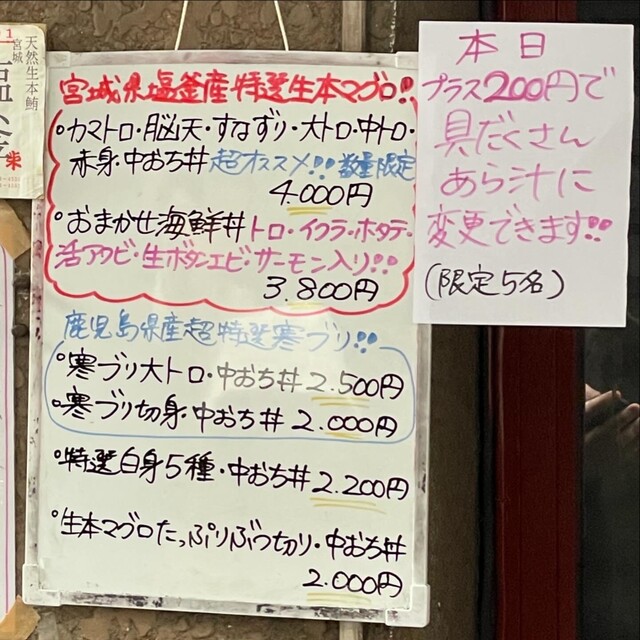 天然生本鮪
宮城
宮城県塩釜産特選生本マグロ!!
・カマトロ・脳天・すなずり・大トロ・中トロ・
赤身・中おち丼 超オススメ!! 数量限定
4.000円
・おまかせ海鮮丼 トロ・イクラ・ホタテ・
活アワビ・生ボタンエビ・サーモン入り!!
3.800円
鹿児島県産超特選寒ブリ!!
・寒ブリ大トロ・中おち丼 2.500円
・寒ブリ切身・中おち丼 2.000円
・特選白身5種・中おち丼 2.200円
・生本マグロたっぷりぶつ切り・中おち丼
2.000円
本日
プラス200円で
具だくさん
あら汁に
変更できます!!
(限定5名)